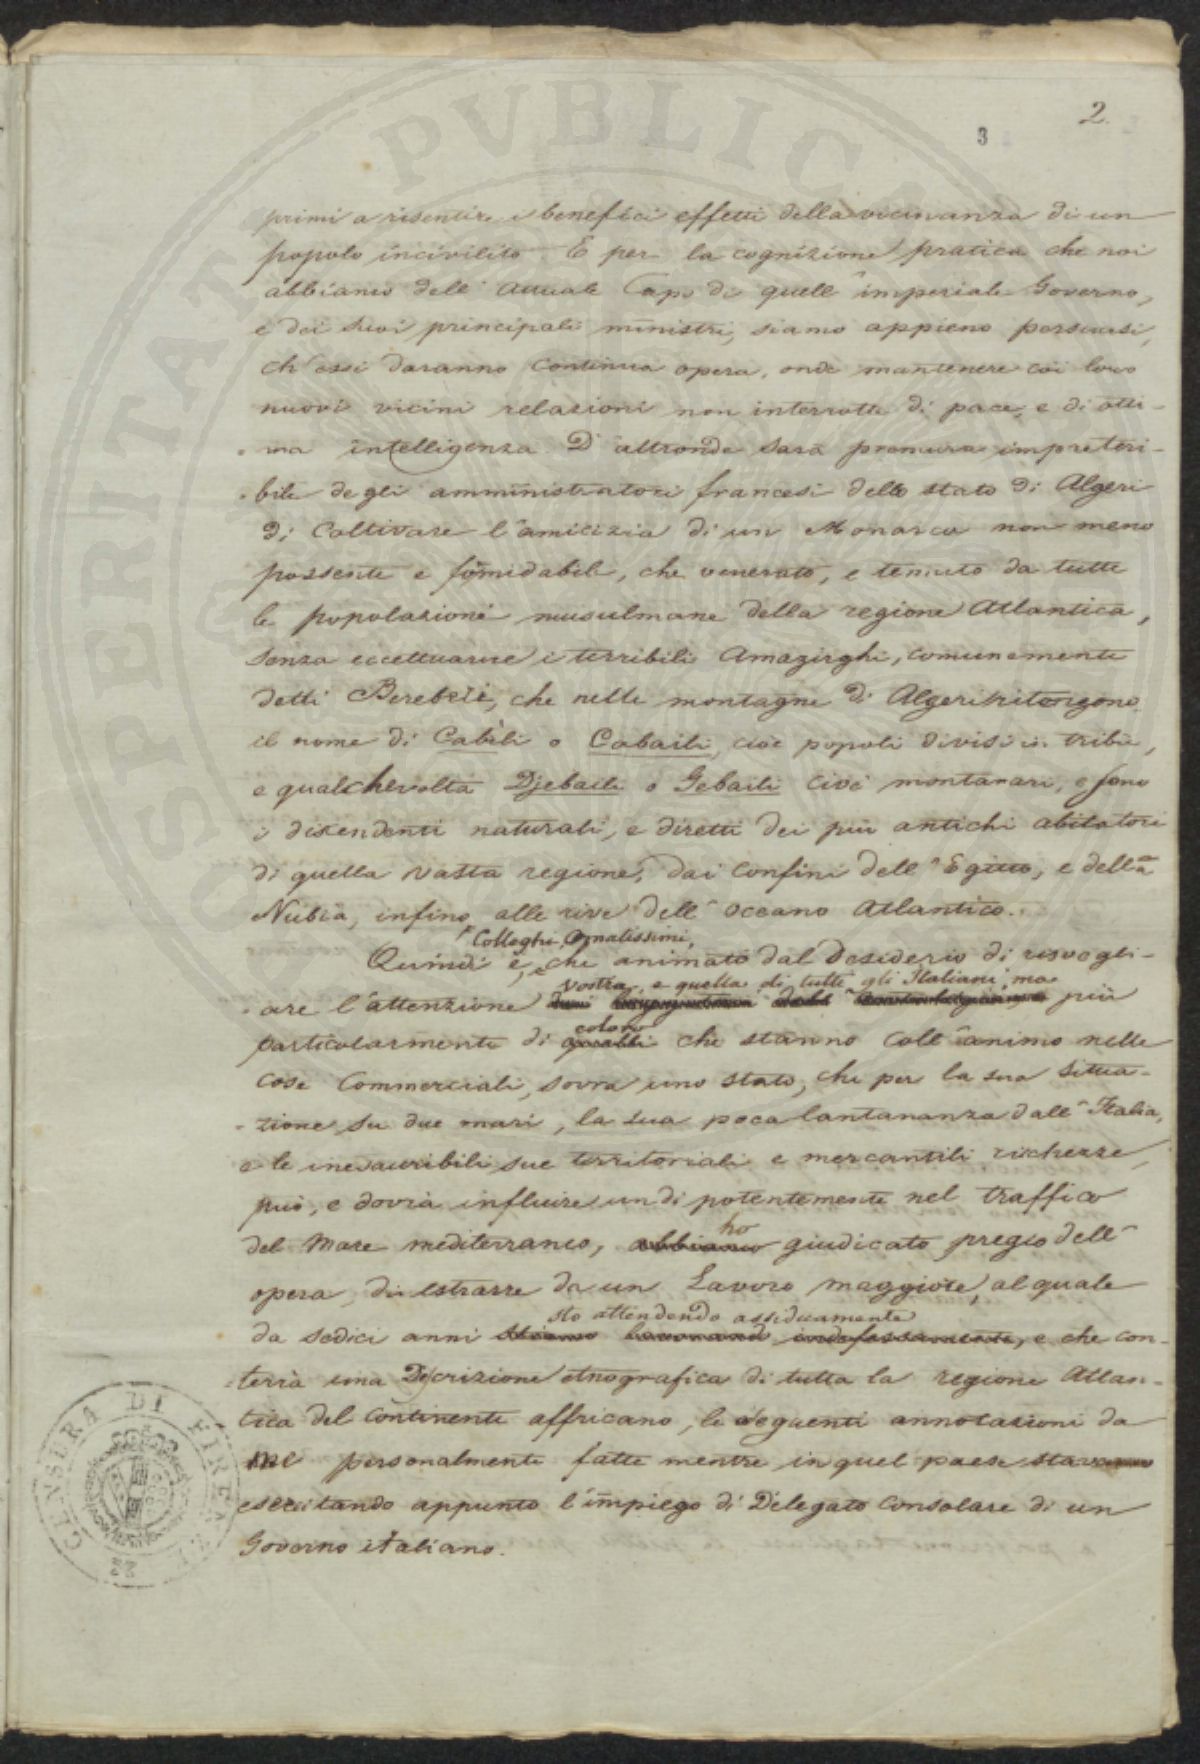 2.
3
primi a risentire i benefici effetti della vicinanza di un
popolo incivilito. E per la cognizione pratica che noi
abbiamo dell' attuale Capo di quell' imperiale Governo,
e dei suoi principali ministri, siamo appieno persuasi,
ch' essi daranno continua opera, onde mantenere coi loro
nuovi vicini relazioni non interrotte di pace, e di otti-
-ma intelligenza. D' altronde sarà premura impreteri-
-bile degli amministratori francesi dello stato di Algeri
di coltivare l' amicizia di un Monarca non meno
possente e formidabile, che venerato, e temuto da tutte
le popolazioni musulmane della regione Atlantica,
senza eccettuarne i terribili Amazirghi, comunemente
detti Bereberi, che nelle montagne di Algeri ritengono
il nome di Cabili o Cabaili, cioè popoli divisi in tribù,
e qualchevolta Djebaili o Gebaili cioè montanari, e sono
i discendenti naturali, e diretti dei più antichi abitatori
di quella vasta regione, dai confini dell' Egitto, e della
Nubia, infino alle rive dell' Oceano Atlantico.
Colleghi Ornatissimi,
Quindi è, che animato dal desiderio di risvegli-
vostra, e quella di tutti gli Italiani, ma
-are l' attenzione più
coloro
particolarmente di quelli che stanno coll' animo nelle
cose commerciali, sovra uno stato, che per la sua situa-
-zione su due mari, la sua poca lantananza dall' Italia,
e le inesauribili sue territoriali e mercantili richezze,
può, e dovrà influire un dì potentemente nel traffico
ho
del Mare mediterraneo, abbiamo giudicato pregio dell'
opera, di estrarre da un Lavoro maggiore, al quale
sto attendendo assiduamente
da sedici anni stiamo lavorando indefessamente, e che con-
-terrà una Descrizione etnografica di tutta la regione Atlan-
tica del Continente affricano, le seguenti annotazioni da
me personalmente fatte mentre in quel paese stava
esercitando appunto l' impiego di Delegato Consolare di un
Governo italiano.
CENSURA DI FIRENZE
SPERITATI PVBLICAE